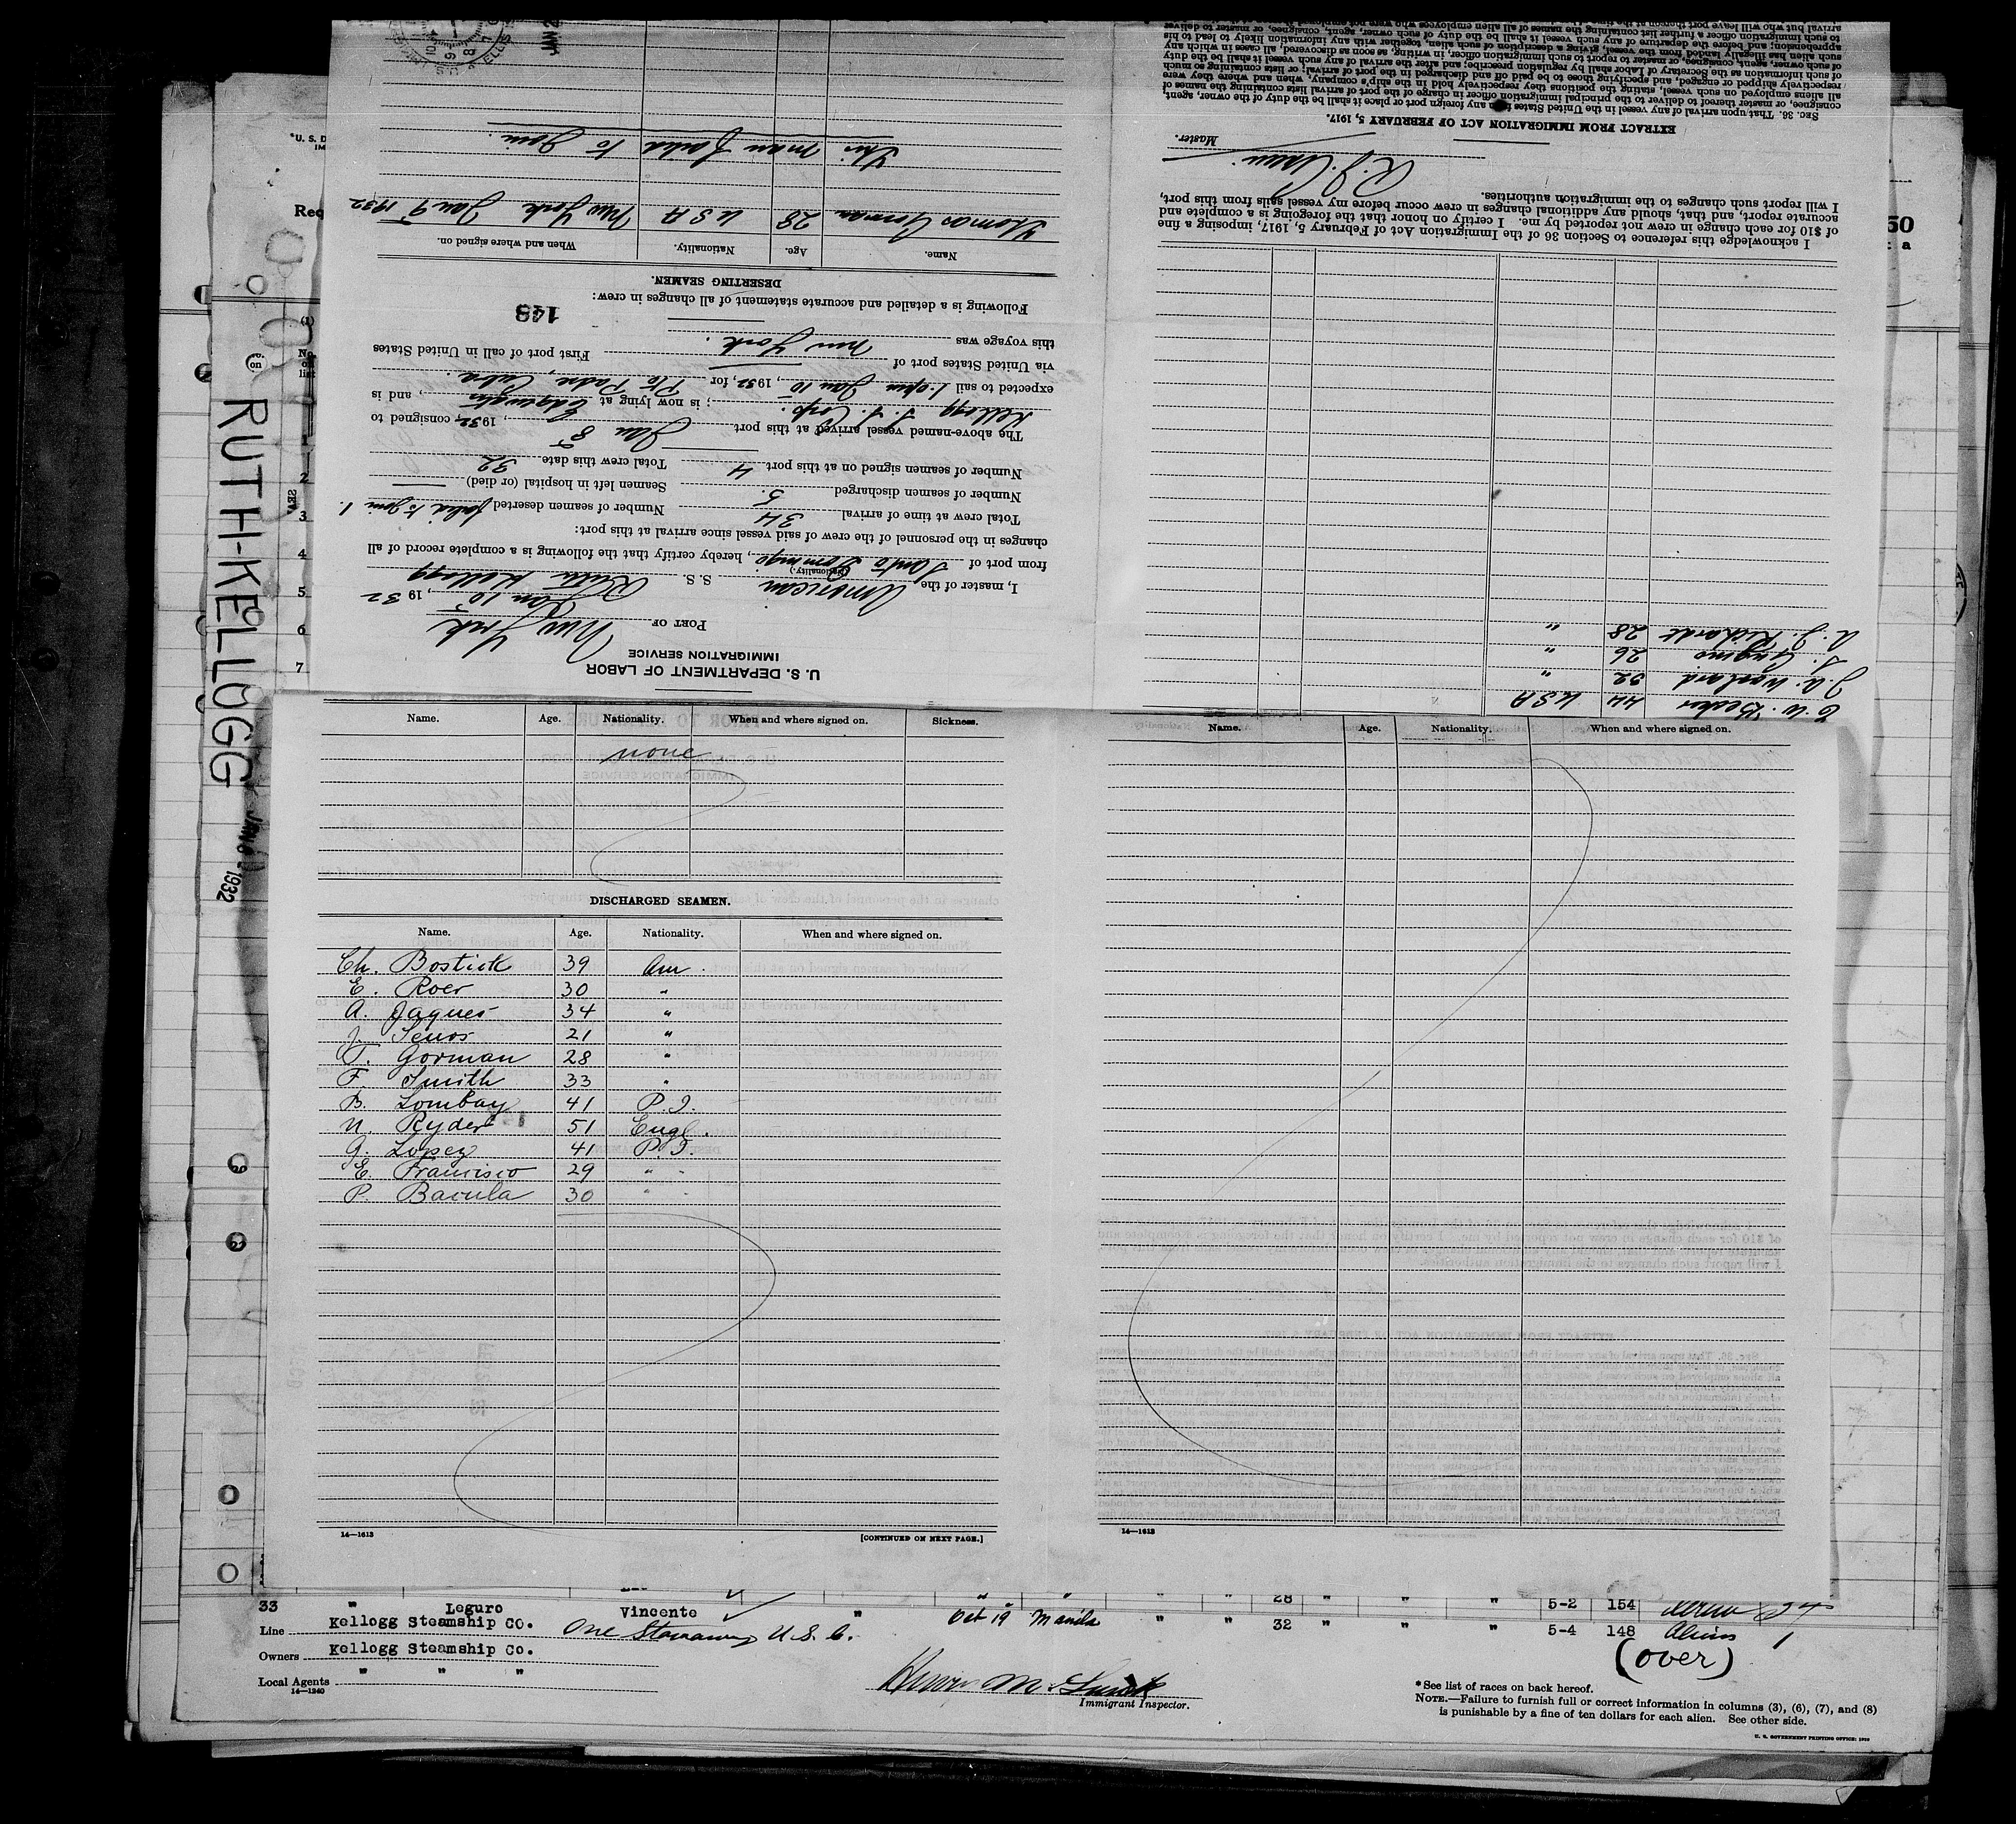 RUTH-KELLOGG
JAN 8 - 1932
U. S. DEPARTMENT OF LABOR
IMMIGRATION SERVICE
PORT OF New York
Jan 10, 1932
I, master of the American S. S. Ruth Kellogg
(Nationality.)
from port of Santo Domingo, hereby certify that the following is a complete record of all
changes in the personnel of the crew of said vessel since arrival at this port:
Total crew at time of arrival 34 Number of seamen deserted failed to join 1.
Number of seamen discharged 5. Seamen left in hospital (or died)
Number of seamen signed on at this port 4 Total crew this date 32
The above-named vessel arrived at this port Jan 8, 1932, consigned to
Kellogg S. S. Corp.; is now lying at Edgewater, and is
expected to sail 1 pm Jan 10, 1932, for Pto Padre, Cuba.
via United States port of First port of call in United States
this voyage was New York.
148
Following is a detailed and accurate statement of all changes in crew:
DESERTING SEAMEN.
Name. Age. Nationality. When and where signed on.
Thomas Gorman 28 USA New York Jan 9 1932
This man failed to join.
C. W. Becker 44 USA
J. A. Woodard 32 "
26 "
A. J. Richardt 28 "
I acknowledge this reference to Section 36 of the Immigration Act of February 5, 1917, imposing a fine
of $10 for each change in crew not reported by me. I certify on honor that the foregoing is a complete and
accurate report, and that, should any additional changes in crew occur before my vessel sails from this port,
I will report such changes to the immigration authorities.
Master.
EXTRACT FROM IMMIGRATION ACT OF FEBRUARY 5, 1917.
SEC. 36. That upon arrival of any vessel in the United States from any foreign port or place it shall be the duty of the owner, agent,
consignee, or master thereof to deliver to the principal immigration officer in charge of the port of arrival lists containing the names of
all aliens employed on such vessel, stating the positions they respectively hold in the ship's company, when and where they were
respectively shipped or engaged, and specifying those to be paid off and discharged in the port of arrival; or lists containing so much
of such information as the Secretary of Labor shall by regulation prescribe; and after the arrival of any such vessel it shall be the duty
of such owner, agent, consignee, or master to report to such immigration officer, in writing, as soon as discovered, all cases in which any
such alien has illegally landed from the vessel, giving a description of such alien, together with any information likely to lead to his
apprehension; and before the departure of any such vessel it shall be the duty of such owner, agent, consignee, or master to deliver
to such immigration officer a further list containing the names of all alien employees who were not employed
Name. Age. Nationality. When and where signed on. Sickness.
none
DISCHARGED SEAMEN.
Name. Age. Nationality. When and where signed on.
Ch. Bostick 39 Am.
E. Roer 30 "
A. Jaques 34 "
J. Senos 21 "
T. Gorman 28 "
F. Smith 33 "
B. Lombay 41 P.I.
N. Ryder 51 Engl.
G. Lopez 41 P.I.
E. Francisco 29 " "
P. Bacula 30 " "
14—1613 [CONTINUED ON NEXT PAGE.]
Name. Age. Nationality. When and where signed on.
14—1613
28 " " " 5-2 154
33 " Leguro Vincente " Oct 19 Manila " " 32 " " " 5-4 148
Line Kellogg Steamship CO. One Stowaway U.S.C.
(over)
Owners Kellogg Steamship Co.
Local Agents " " "
14—1240
Immigrant Inspector.
*See list of races on back hereof.
NOTE.—Failure to furnish full or correct information in columns (3), (6), (7), and (8)
is punishable by a fine of ten dollars for each alien. See other side.
U. S. GOVERNMENT PRINTING OFFICE: 1930